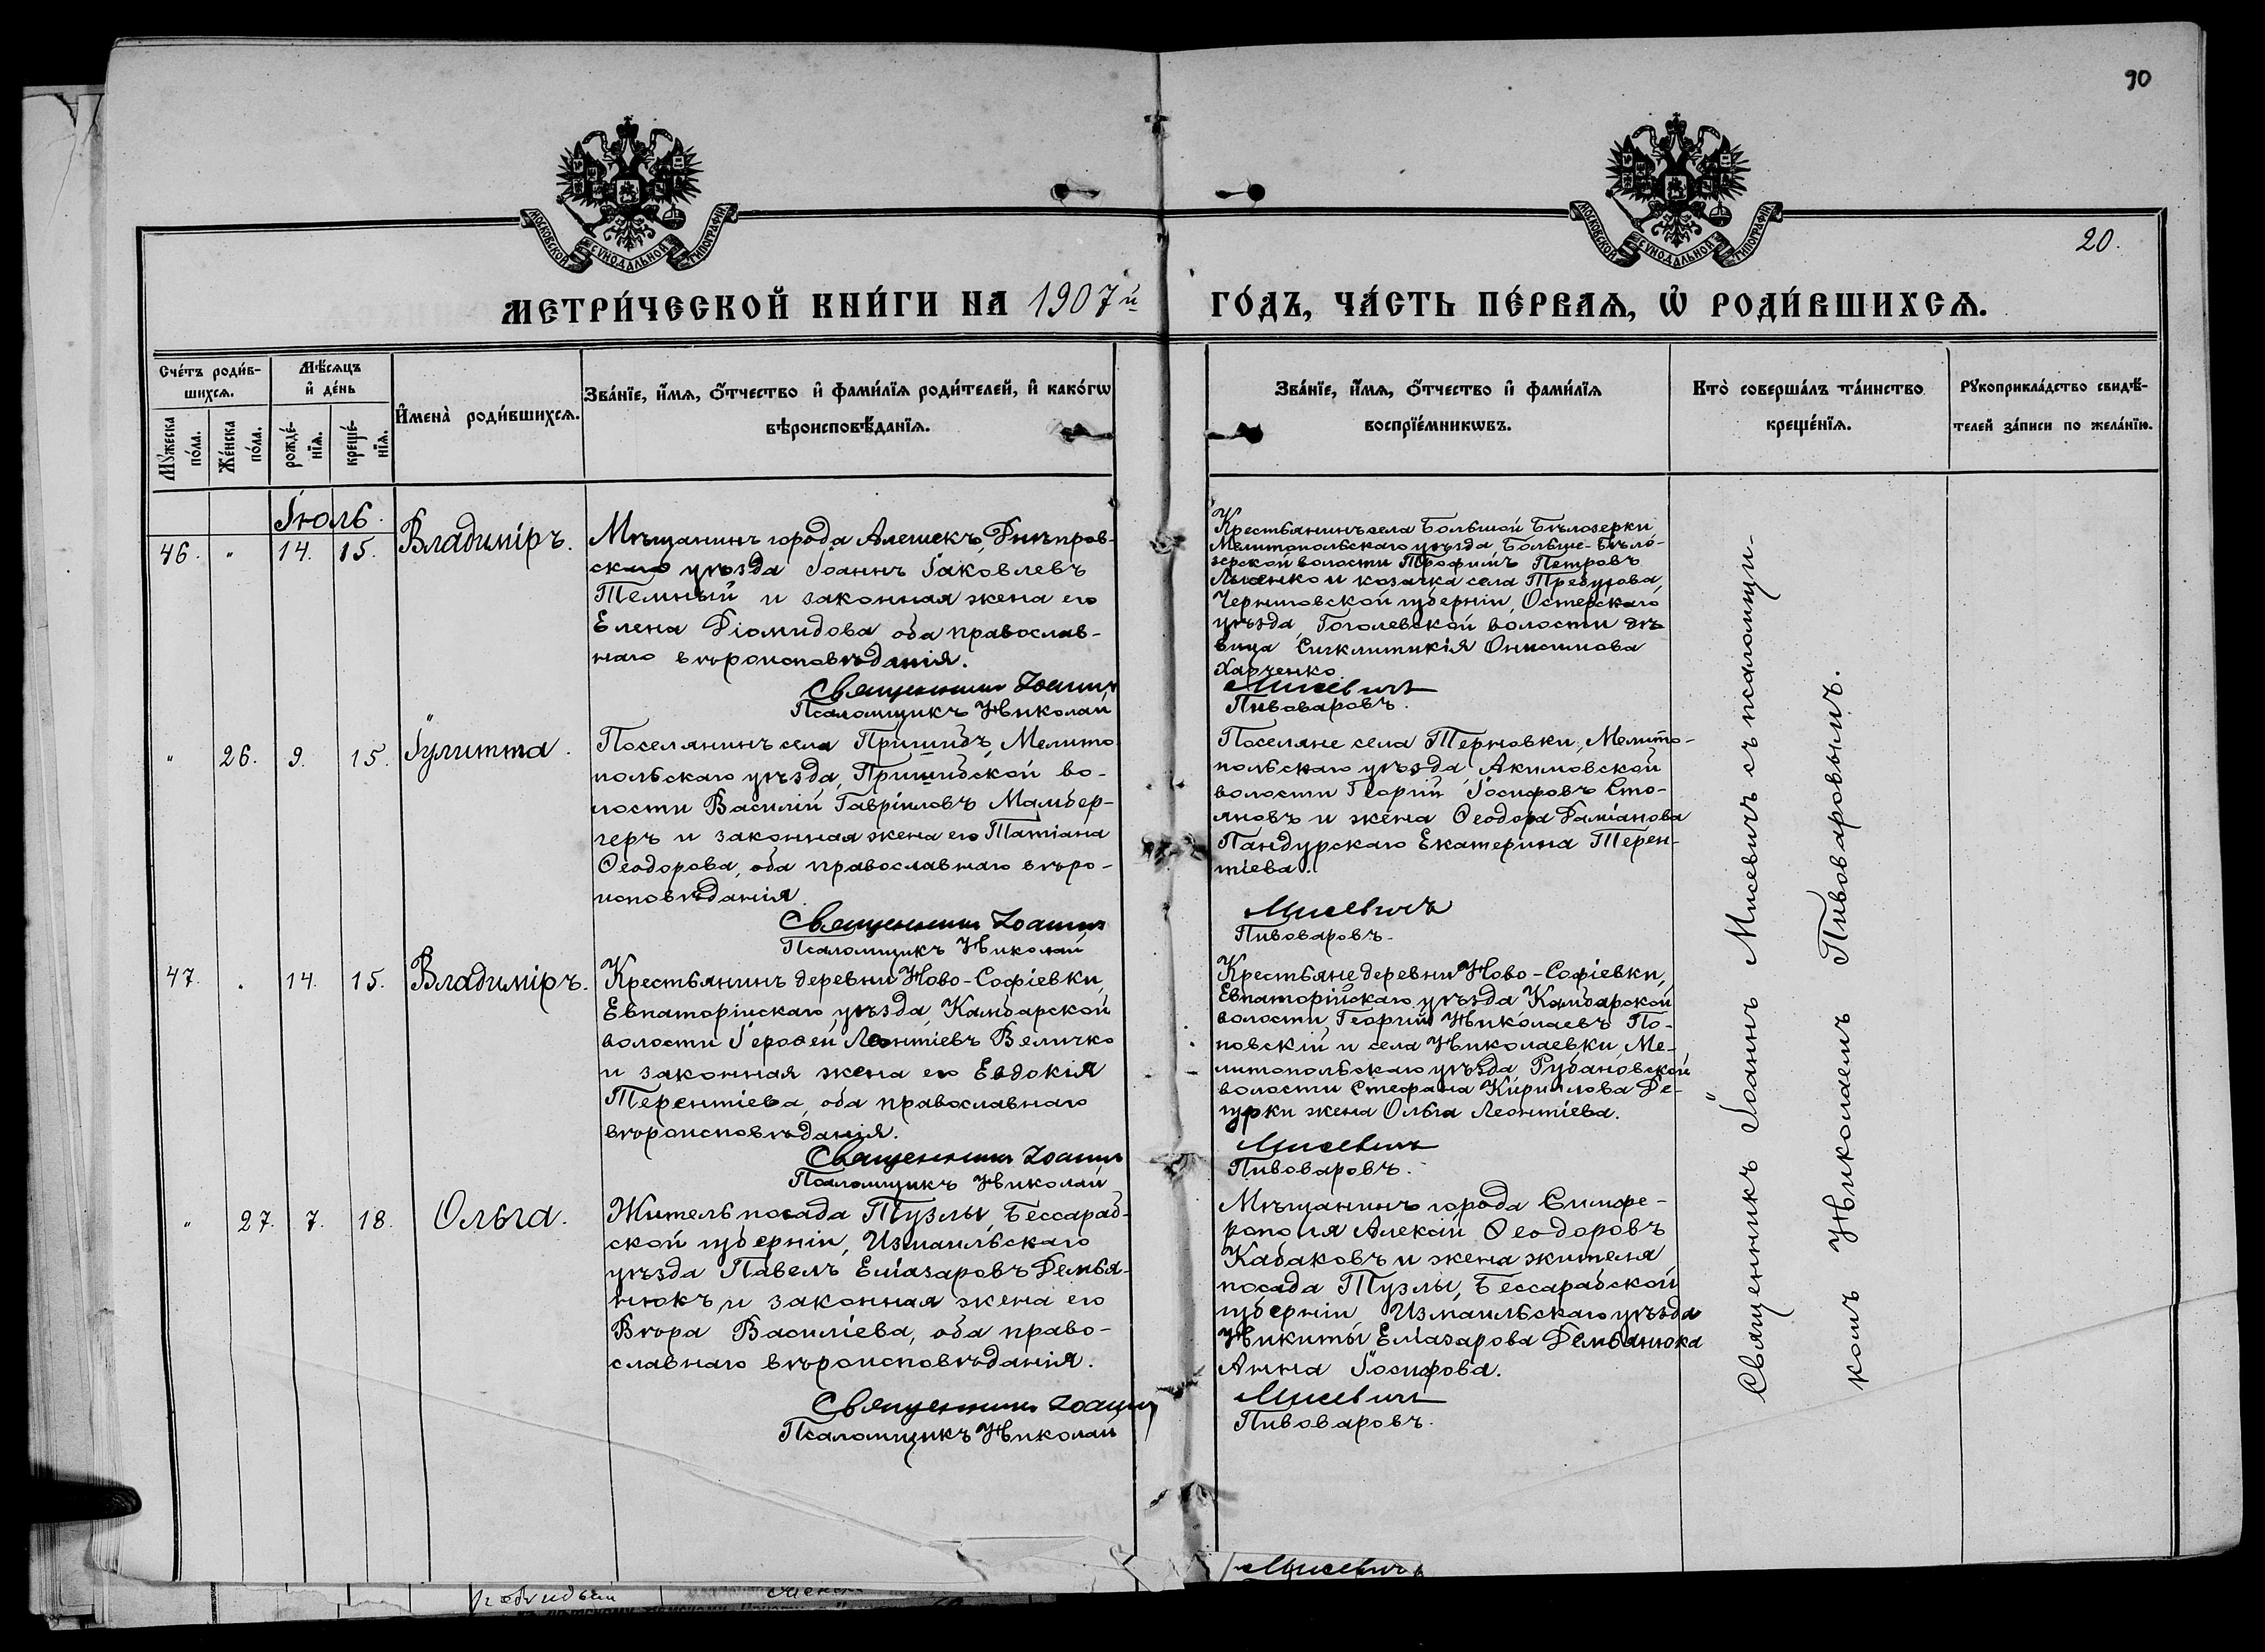 90
МОСКОВСКОЙ СУНОДАЛЬНОЙ ТИПОГРАФИИ
МОСКОВСКОЙ СУНОДАЛЬНОЙ ТИПОГРАФИИ
20.
МЕТРИ́ЧЕСКОЙ КНИ́ГИ НА 1907й ГО́ДЪ, ЧА́СТЬ ПЕ́РВАѦ, Ѡ РОДИ́ВШИХСѦ.
Сче́тъ роди́в-
шихсѧ.
Мѣ́сѧцъ
и де́нь
Мꙋ́жеска
по́ла.
Же́нска
по́ла.
рожде́-
нїѧ.
креще́-
нїѧ.
И҆мена̀ роди́вшихсѧ.
Зва́нїе, и҆́мѧ, ѻ҆́тчество и҆ фами́лїѧ роди́телей, и҆ како́гѡ
вѣроисповѣ́данїѧ.
Зва́нїе, и҆́мѧ, ѻ҆́тчество и҆ фами́лїѧ
воспрїе́мникѡвъ.
Кто̀ соверша́лъ та́инство
креще́нїѧ.
Рꙋкоприкла́дство свидѣ́-
телей за́писи по жела́нїю.
Іюль.
46. " 14. 15. Владиміръ.
Мѣщанинъ города Алешекъ, Днѣпров-
скаго уѣзда Іоаннъ Іаковлевъ
Темный и законная жена его
Елена Діомидова оба православ-
наго вѣроисповѣданія.
Священникъ Іоаннъ
Псаломщикъ Николай
Крестьянинъ села Большой Бѣлозерки
Мелитопольскаго уѣзда, Больше-Бѣло-
зерской волости Трофимъ Петровъ
Лысенко и козачка села Требухова,
Черниговской губерніи, Остерскаго
уѣзда, Гоголевской волости дѣ-
вица Сигклитикія Онисимова
Харченко.
Мисевичъ
Пивоваровъ.
" 26. 9. 15. Іулитта.
Поселянинъ села Пришибъ, Мелито-
польскаго уѣзда, Пришибской во-
лости Василій Гавріиловъ Мамбер-
геръ и законная жена его Татіана
Ѳеодорова, оба православнаго вѣро-
исповѣданія.
Священникъ Іоаннъ
Псаломщикъ Николай
Поселяне села Терновки, Мелито-
польскаго уѣзда, Акимовской
волости Георгій Іосифовъ Сто-
яновъ и жена Ѳеодора Даміанова
Пандурскаго Екатерина Терен-
тіева.
Мисевичъ
Пивоваровъ.
47. . 14. 15. Владиміръ.
Крестьянинъ деревни Ново-Софіевки,
Евпаторійскаго уѣзда, Камбарской
волости Іероѳей Леонтіевъ Величко
и законная жена его Евдокія
Терентіева, оба православнаго
вѣроисповѣданія.
Священникъ Іоаннъ
Псаломщикъ Николай
Крестьяне деревни Ново-Софіевки,
Евпаторійскаго уѣзда Камбарской
волости, Георгій Николаевъ По-
новскій и села Николаевки, Ме-
литопольскаго уѣзда Рубановской
волости Стефана Кириллова Де-
гурки жена Ольга Леонтіева.
Мисевичъ
Пивоваровъ.
" 27. 7. 18. Ольга.
Житель посада Тузлы, Бессараб-
ской губерніи, Измаильскаго
уѣзда Павелъ Еліазаровъ Демья-
нюкъ, и законная жена его
Вѣра Василіева, оба право-
славнаго вѣроисповѣданія.
Священникъ Іоаннъ
Псаломщикъ Николай
Мѣщанинъ города Симфе-
рополя Алексій Ѳеодоровъ
Кабаковъ и жена жителя
посада Тузлы, Бессарабской
губерніи Измаильскаго уѣзда
Никиты Еліазарова Демьянюка
Анна Іосифова.
Мисевичъ
Пивоваровъ.
Священникъ Іоаннъ Мисевичъ съ псаломщи-
комъ Николаемъ Пивоваровымъ.
Мисевичъ